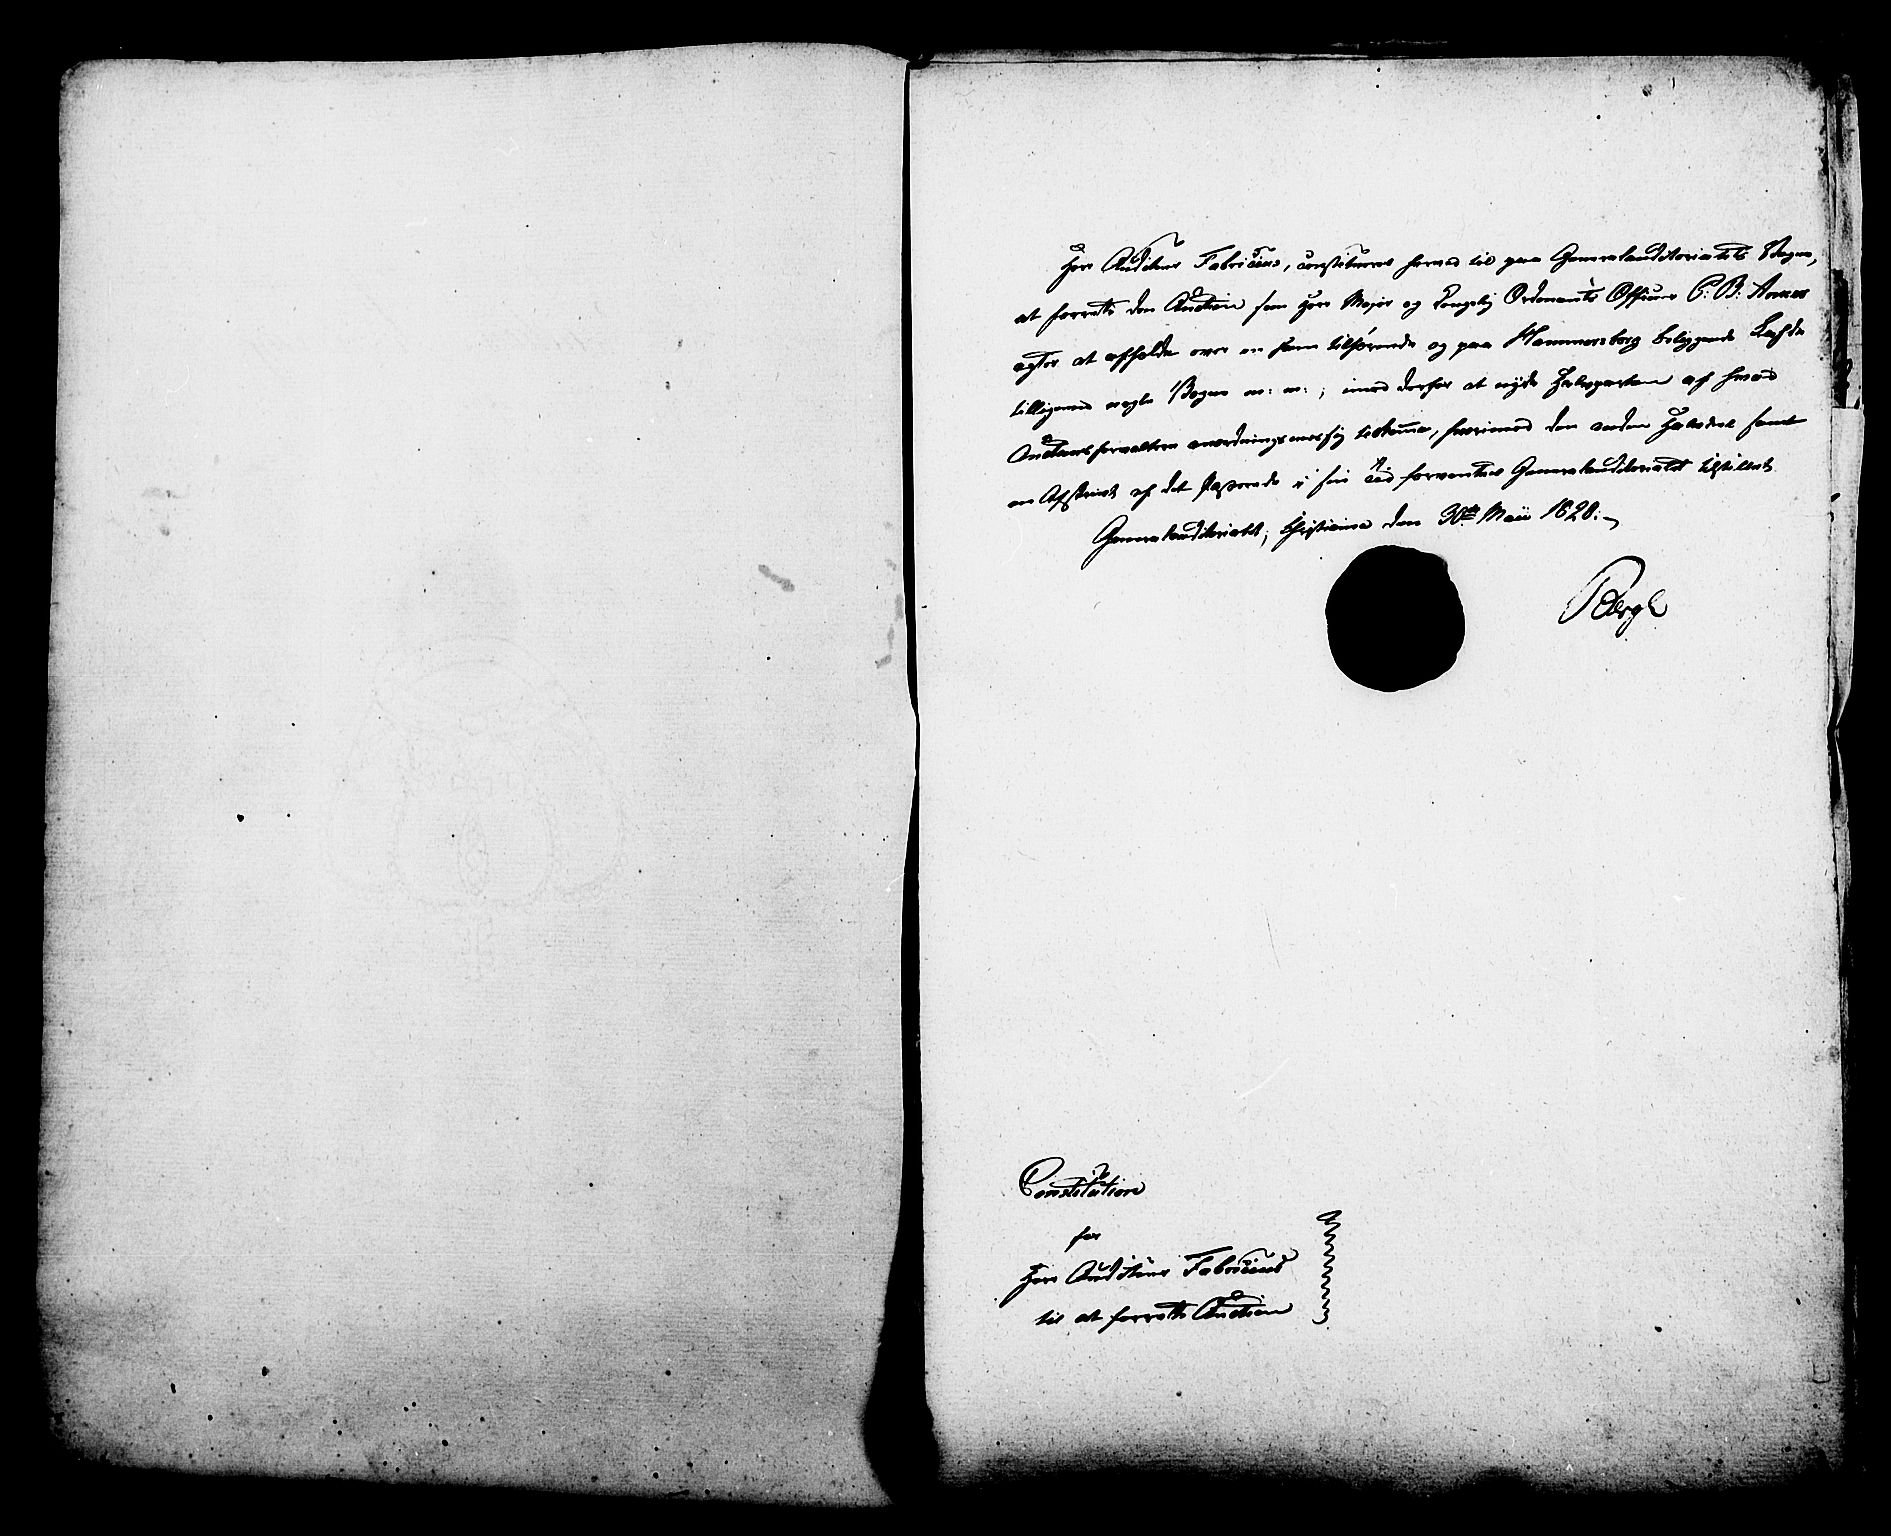 Herr Auditeur Fabricius, constitueres herved til paa Generalauditoriatets Vegne,
at forrette den Auction som Herr Major og Kongelig Ordonants Officeer P: B: Anker
agter at afholde over en ham tilhørende og paa Hammersborg beliggende Løkke
tilligemed nogle Bøger m: m:; imod derfor at nyde Halvparten af hvad
Auctionsforvalteren anordningsmessig tilkommer, hvorimod den anden Halvdeel samt
en Afskrivt af det Passerede i sin Tid forventes Generalauditoriatet tilstillet.
Generalauditoriatet, Christiania den 30te Maii 1820.
Bergh
Constitution
for
Herr Auditeur Fabricius
til at forrette Auction